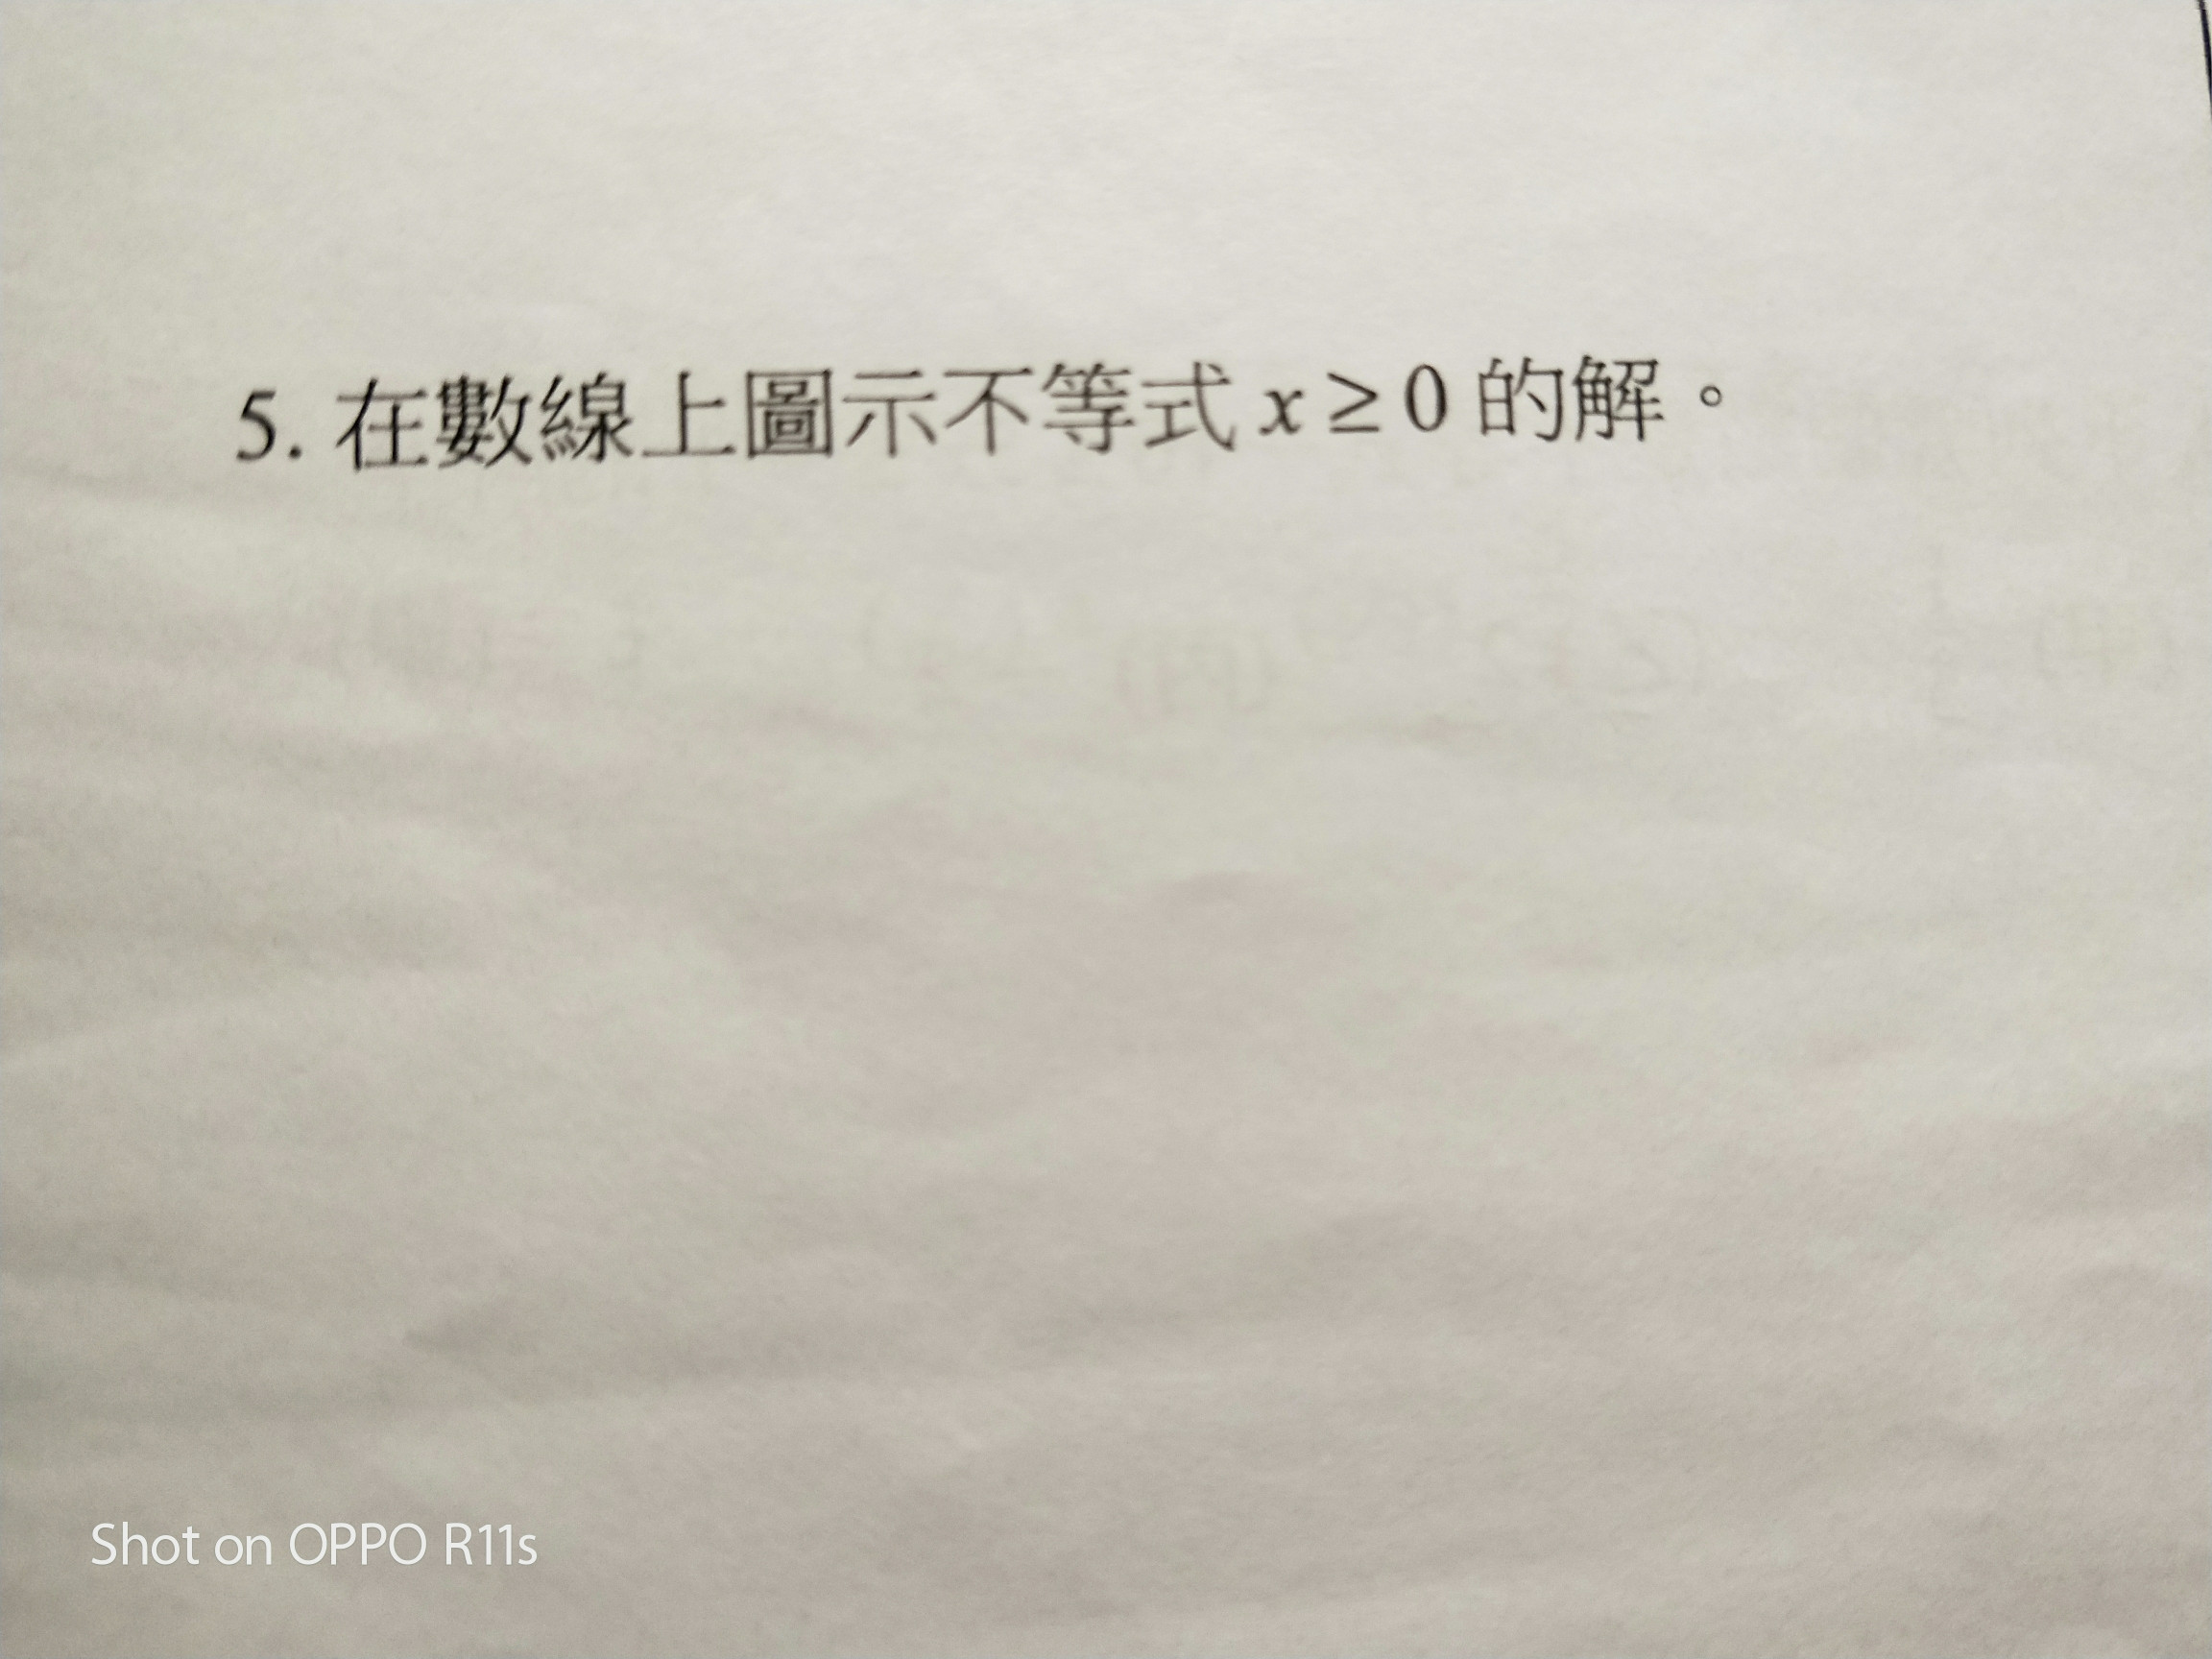 5. 在數線上圖示不等式 x ≥ 0 的解。
Shot on OPPO R11s